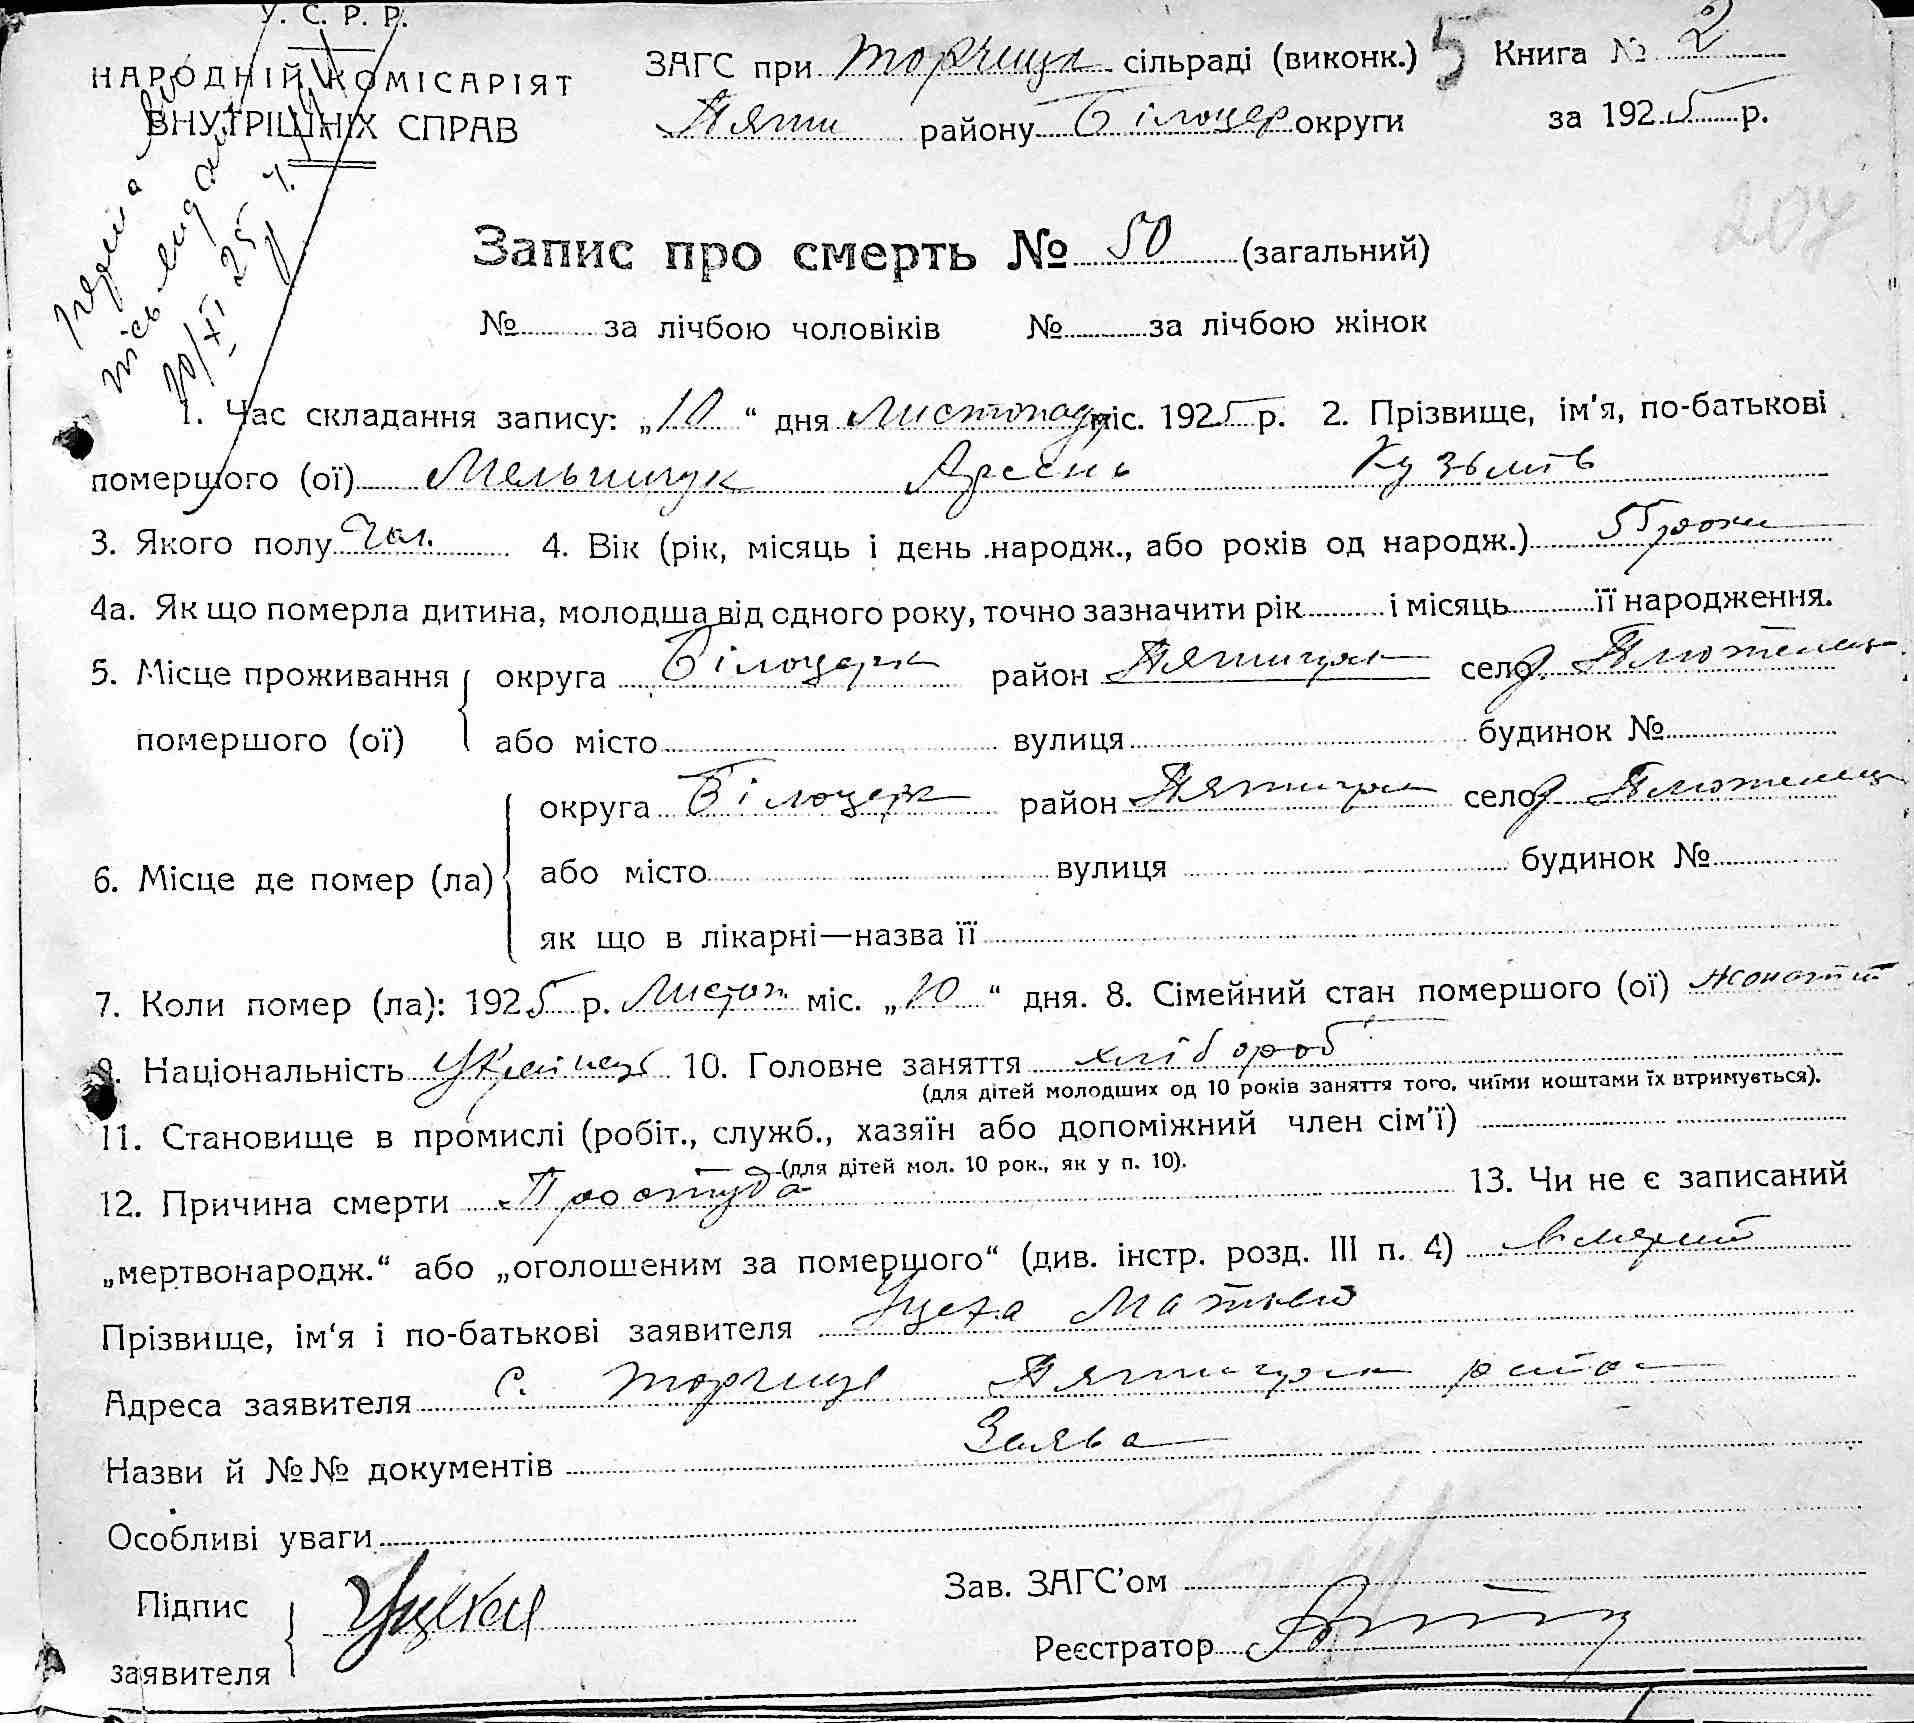 У. С. Р. Р.
НАРОДНІЙ КОМІСАРІЯТ
ВНУТРІШНІХ СПРАВ
ЗАГС при Торчиця сільраді (виконк.) 5 Книга № 2
Пяти району Білоцер округи за 1925 р.
207
10/XI 25
Запис про смерть № 50 (загальний)
№ за лічбою чоловіків № за лічбою жінок
1. Час складання запису: „10“ дня Листопад міс. 1925 р. 2. Прізвище, ім'я, по-батькові
помершого (ої) Мельничук Арсень Кузьмів
3. Якого полу Чол. 4. Вік (рік, місяць і день народж., або років од народж.) 55 роки
4а. Як що померла дитина, молодша від одного року, точно зазначити рік і місяць її народження.
5. Місце проживання помершого (ої) округа Білоцерк район Пятигорск село
або місто вулиця будинок №
6. Місце де помер (ла) округа Білоцерк район Пятигорск село
або місто вулиця будинок №
як що в лікарні—назва її
7. Коли помер (ла): 1925 р. Листоп міс. „10“ дня. 8. Сімейний стан помершого (ої) жонатий
9. Національність Українець 10. Головне заняття хлібороб
(для дітей молодших од 10 років заняття того, чиїми коштами їх втримується).
11. Становище в промислі (робіт., служб., хазяїн або допоміжний член сім'ї)
(для дітей мол. 10 рок., як у п. 10).
12. Причина смерти Простуда 13. Чи не є записаний
„мертвонародж.“ або „оголошеним за помершого“ (див. інстр. розд. III п. 4)
Прізвище, ім'я і по-батькові заявителя Матвій
Адреса заявителя с. Торчиця Пятигорск района
Назви й №№ документів Заява
Особливі уваги
Підпис заявителя
Зав. ЗАГС'ом
Реєстратор